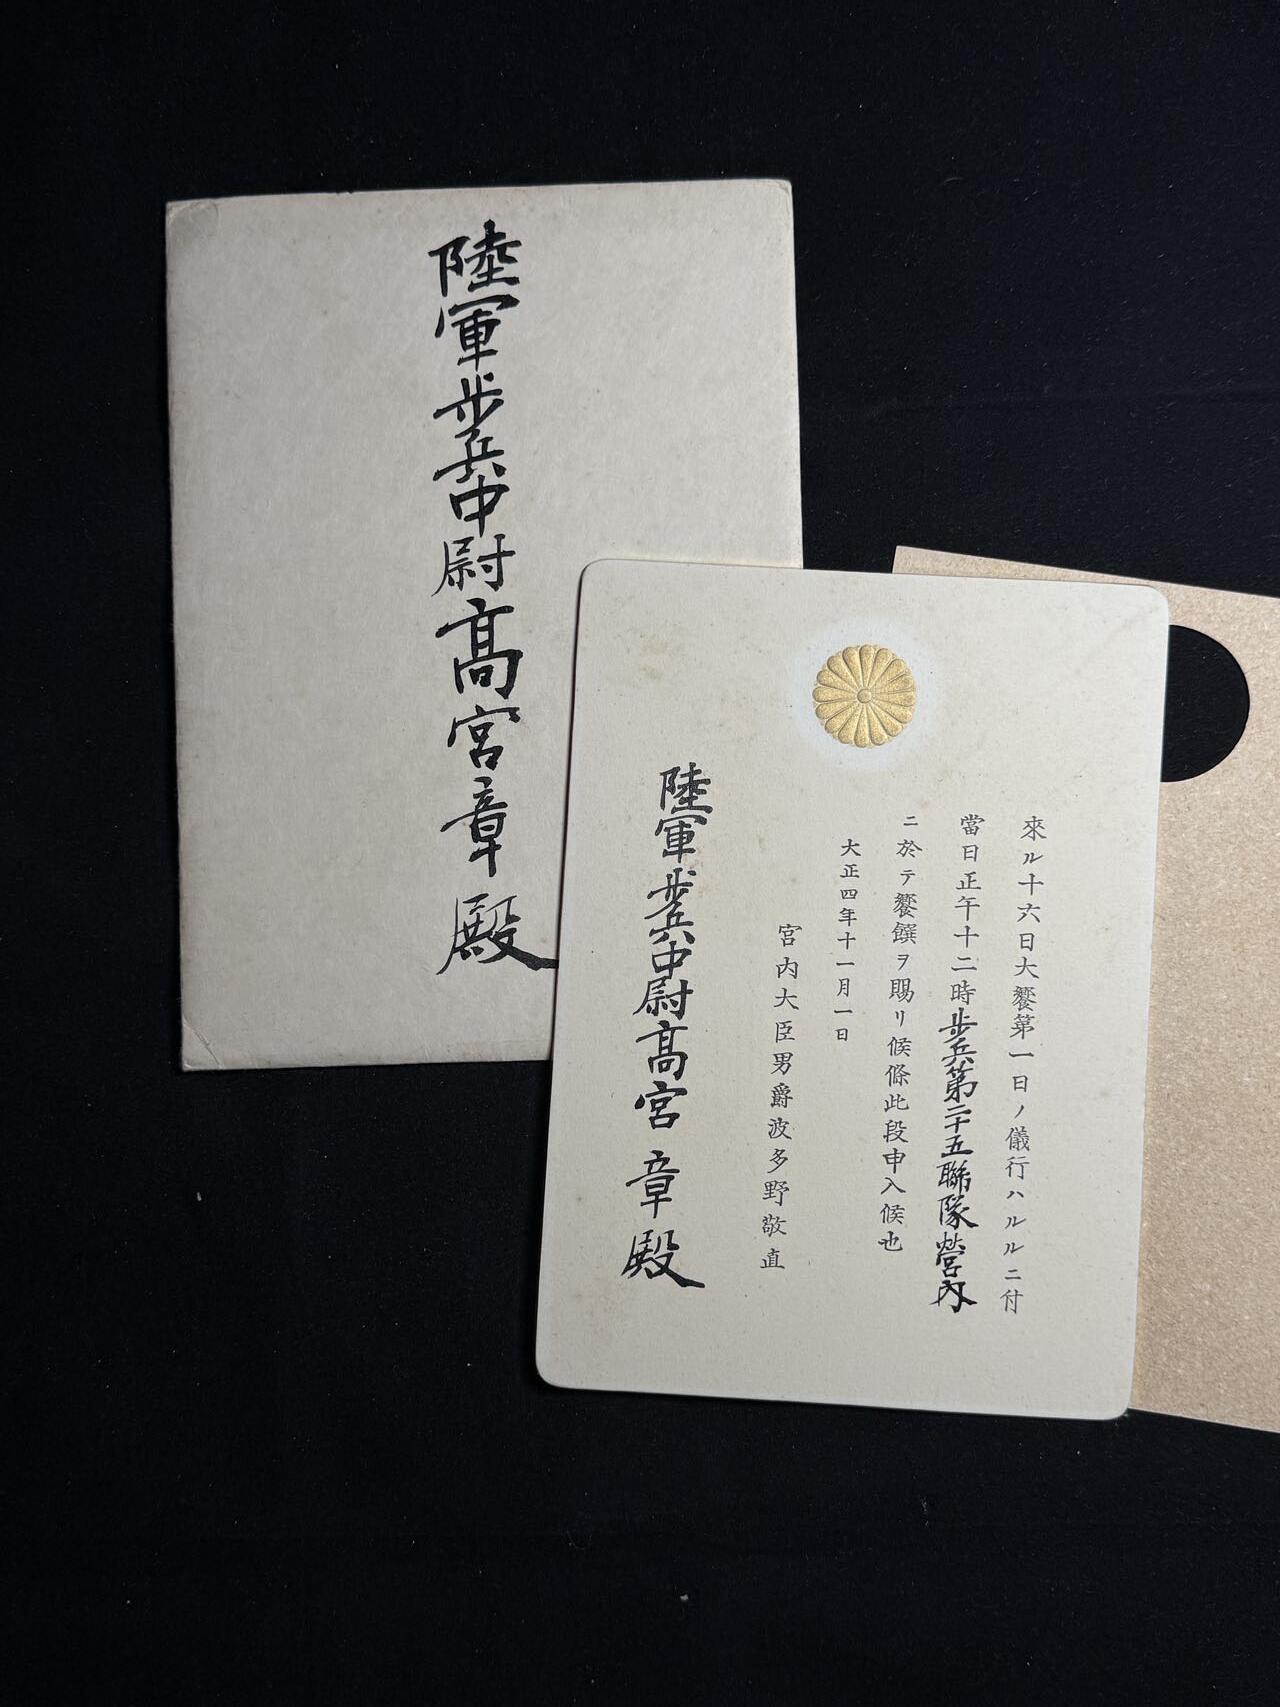 陸軍歩兵中尉髙宮章殿
來ル十六日大饗第一日ノ儀行ハルルニ付
當日正午十二時歩兵第二十五聯隊營内
ニ於テ饗饌ヲ賜リ候條此段申入候也
大正四年十一月一日
宮内大臣男爵波多野敬直
陸軍歩兵中尉髙宮章殿